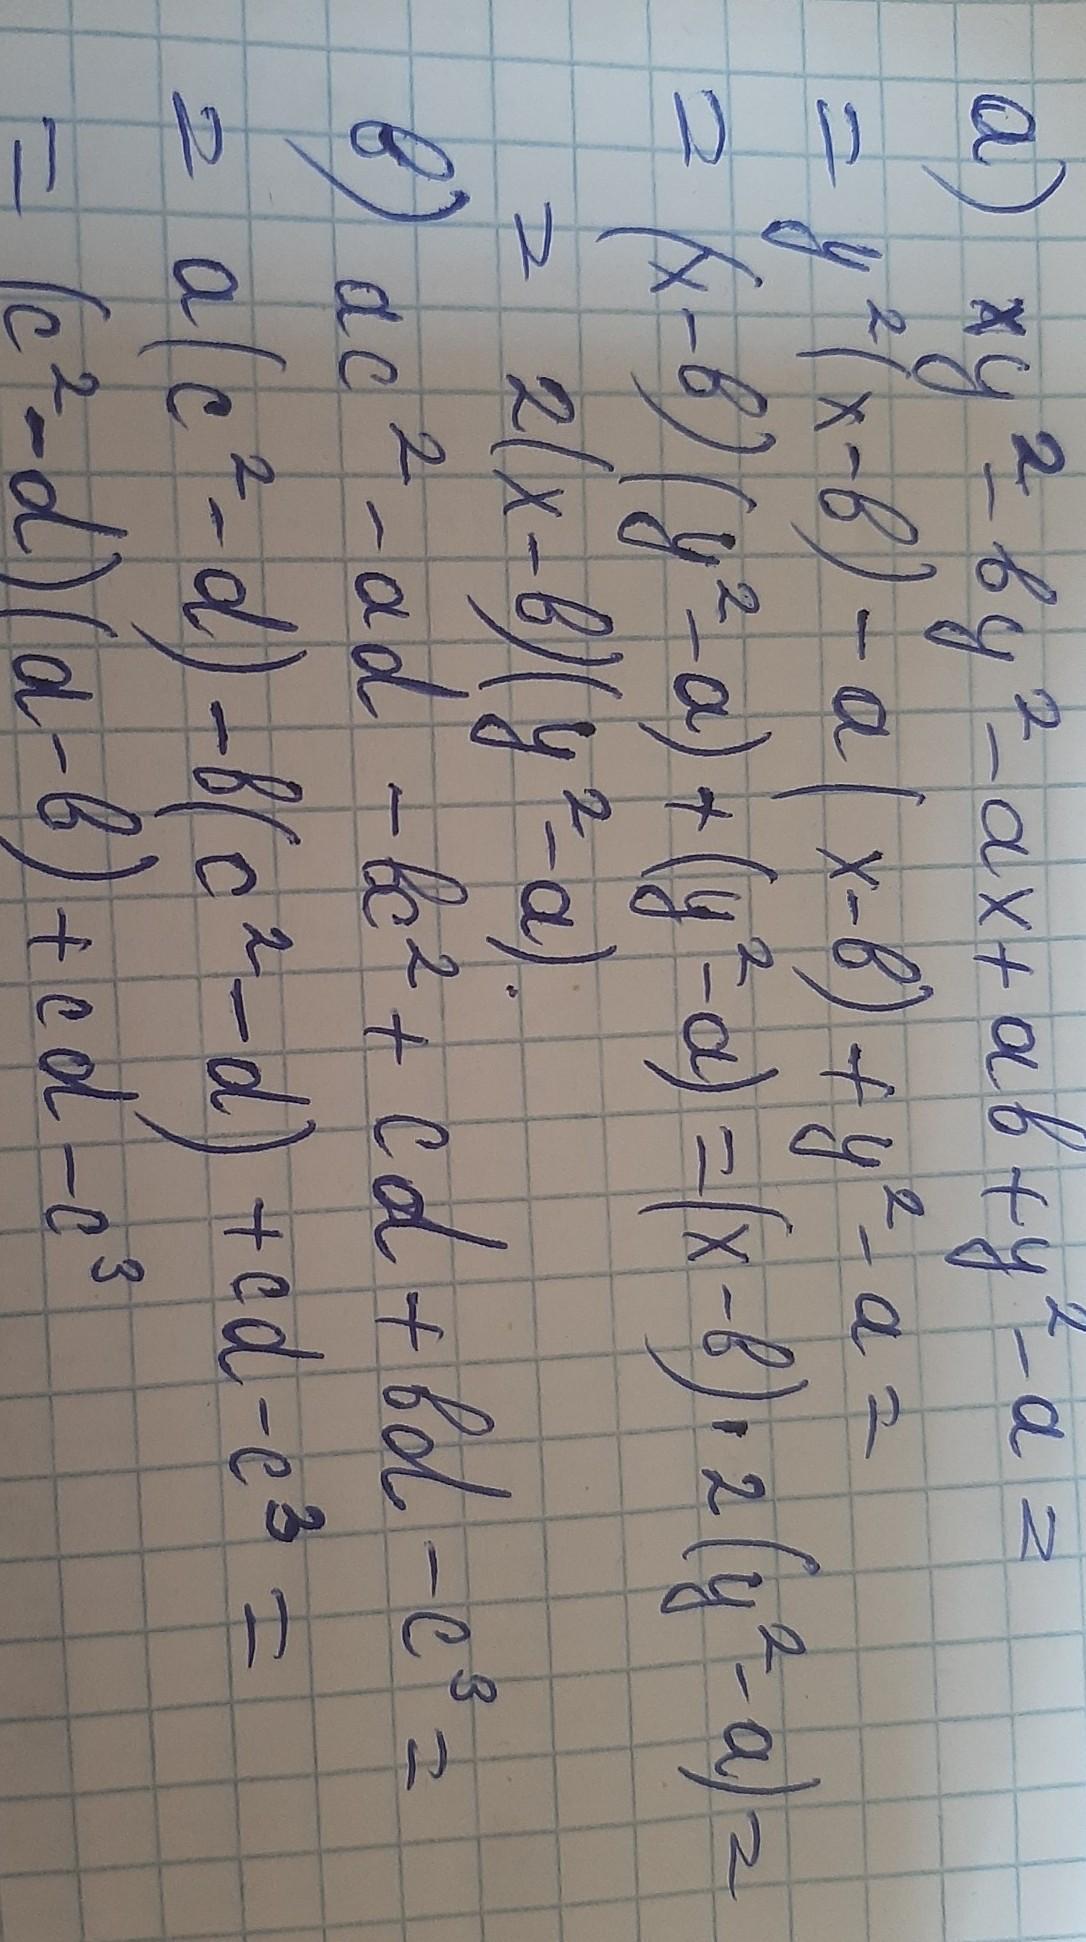 а) xy² - by² - ax + ab + y² - a =
= y²(x - b) - a(x - b) + y² - a =
= (x - b)(y² - a) + (y² - a) = (x - b) · 2(y² - a) =
= 2(x - b)(y² - a).
в) ac² - ad - bc² + cd + bd - c³ =
= a(c² - d) - b(c² - d) + cd - c³ =
= (c² - d)(a - b) + cd - c³